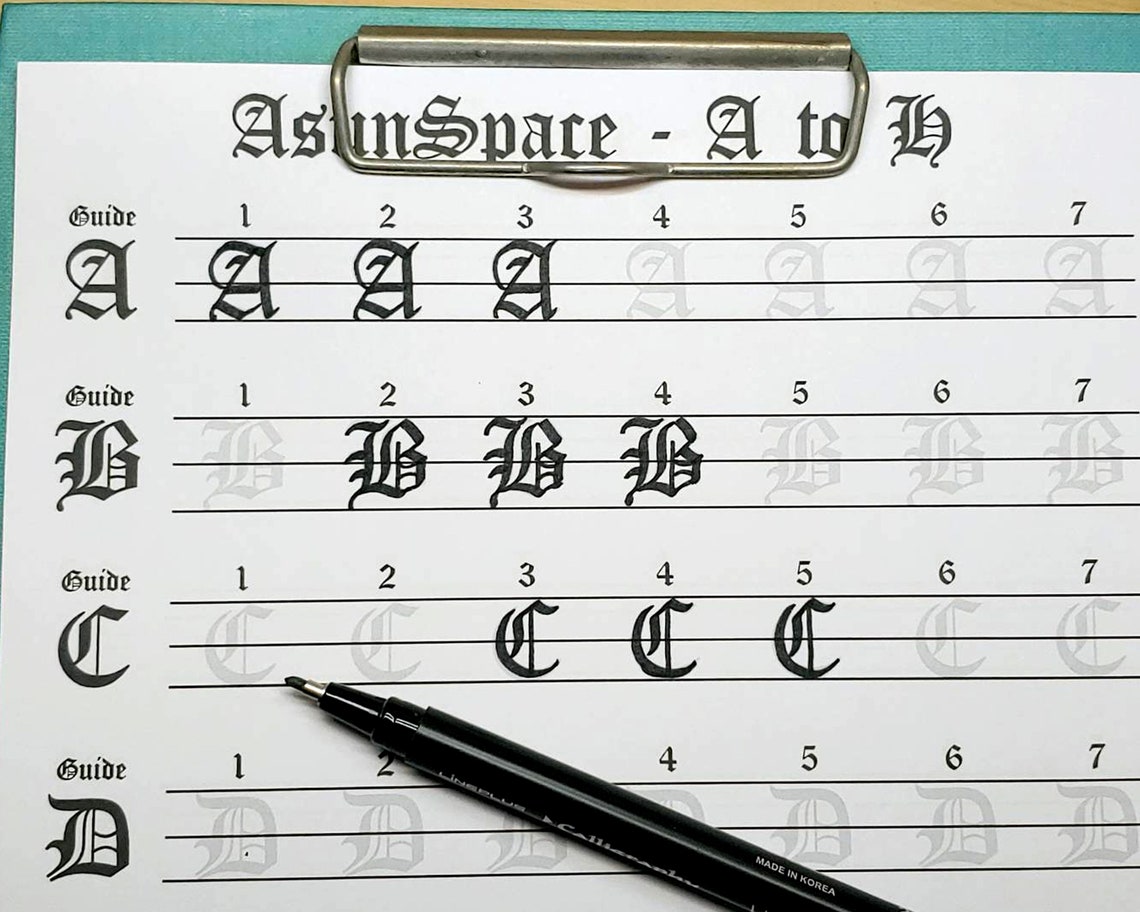 AsunSpace - A to H
Guide 1 2 3 4 5 6 7
A A A A A A A A
Guide 1 2 3 4 5 6 7
B B B B B B B B
Guide 1 2 3 4 5 6 7
C C C C C C C C
Guide 1 2 4 5 6 7
D D D D D D D D
LINEPLUS Calligraphy MADE IN KOREA